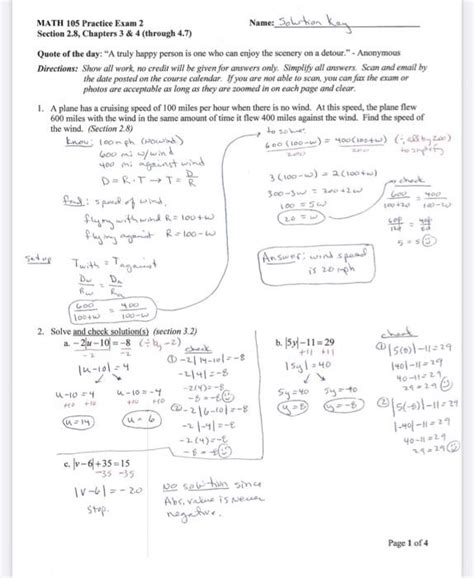 MATH 105 Practice Exam 2
Name: Solution Key
Section 2.8, Chapters 3 & 4 (through 4.7)
Quote of the day: "A truly happy person is one who can enjoy the scenery on a detour." - Anonymous
Directions: Show all work, no credit will be given for answers only. Simplify all answers. Scan and email by
the date posted on the course calendar. If you are not able to scan, you can fax the exam or
photos are acceptable as long as they are zoomed in on each page and clear.
1. A plane has a cruising speed of 100 miles per hour when there is no wind. At this speed, the plane flew
600 miles with the wind in the same amount of time it flew 400 miles against the wind. Find the speed of
the wind. (Section 2.8)
Know: 100mph (no wind)
600 mi w/wind
400 mi against wind
D = R·T → T = D/R
Find: speed of wind,
flying with wind R = 100+w
flying against R = 100-w
Setup
T with = T against
Dw/Rw = Da/Ra
600/100+w = 400/100-w
to solve:
600(100-w)/200 = 400(100+w)/200 (÷ all by 200)
to simplify
3(100-w) = 2(100+w)
300-3w = 200+2w
100 = 5w
20 = w
Answer: wind speed
is 20 mph
check
600/100+20 = 400/100-20
600/120 = 400/80
5 = 5
2. Solve and check solution(s) (section 3.2)
a. -2|u-10| = -8 (÷ by -2)
-2 -2
|u-10| = 4
u-10=4 u-10=-4
+10 +10 +10 +10
u=14 u=6
check
① -2|14-10|=-8
-2|4|=-8
-2(4)=-8
-8=-8
② -2|6-10|=-8
-2|-4|=-8
-2(4)=-8
-8=-8
b. |5y|-11=29
+11 +11
|5y|=40
5y=40 5y=-40
y=8 y=-8
check
① |5(8)|-11=29
|40|-11=29
40-11=29
29=29
② |5(-8)|-11=29
|-40|-11=29
40-11=29
29=29
c. |v-6|+35=15
-35 -35
|v-6|=-20
Stop.
No solution since
Abs. value is never
negative.
Page 1 of 4